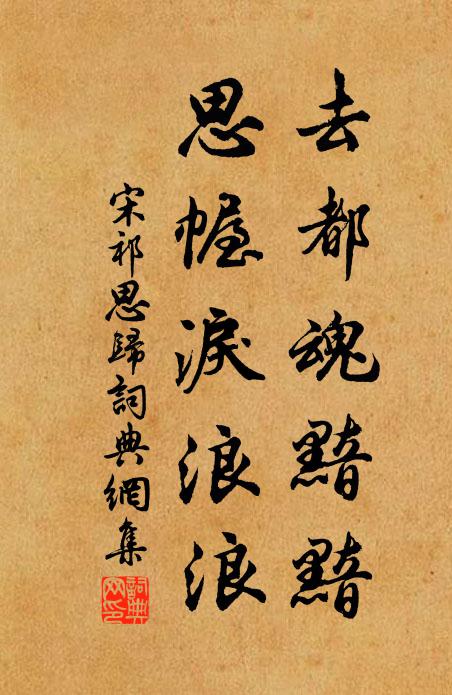 去都魂黯黯
思幄淚浪浪
宋祁思歸詞典網集
詞典網印